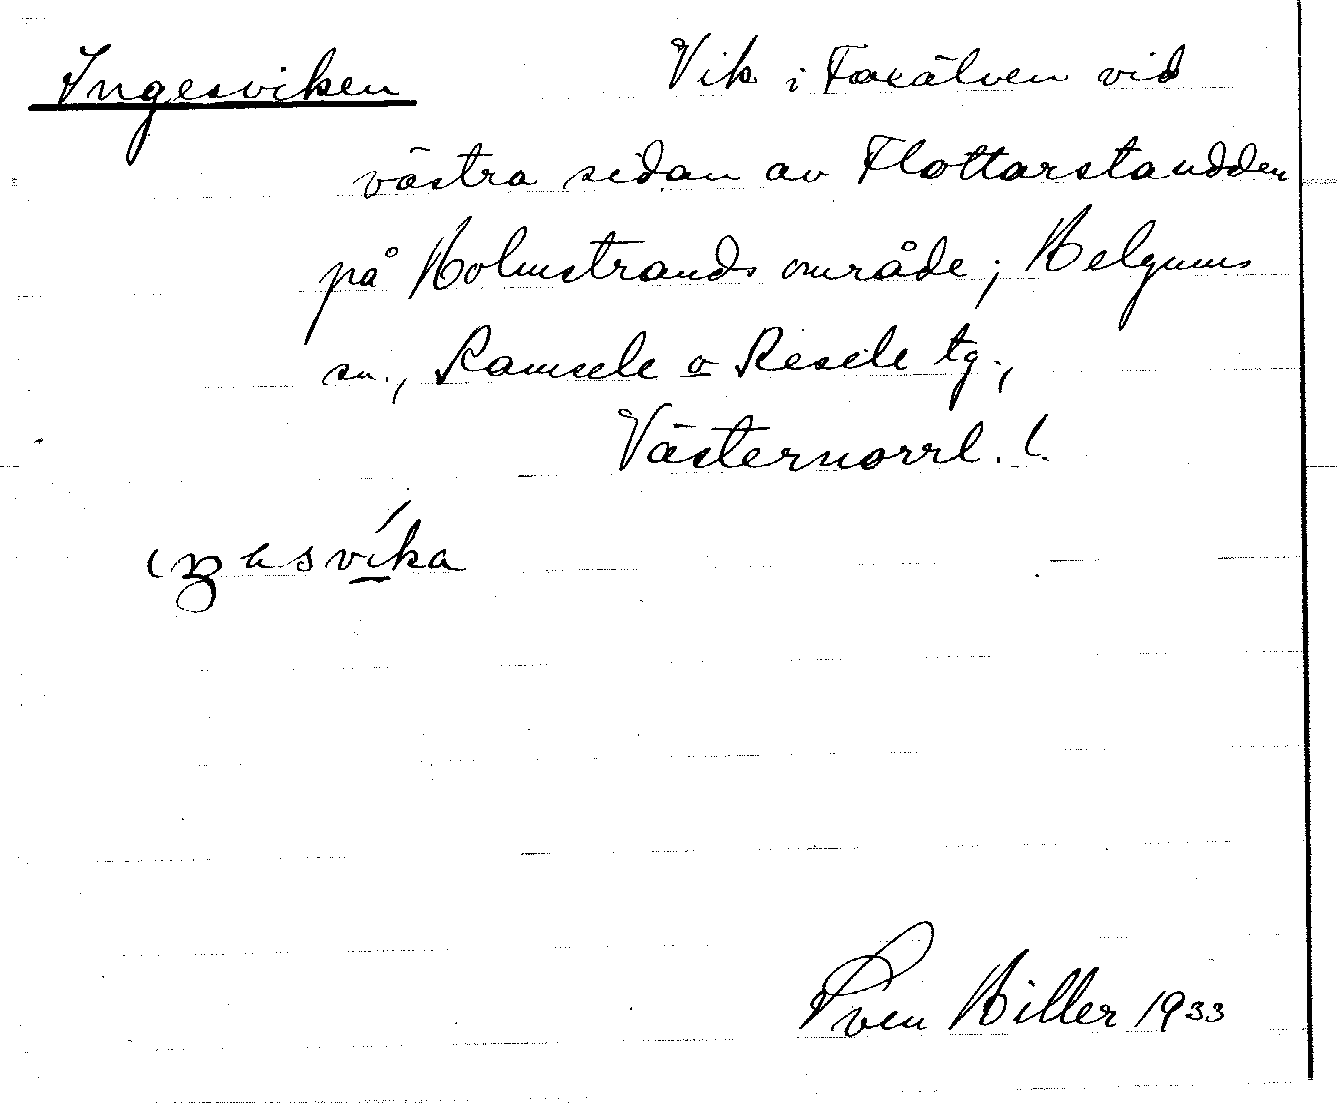 Ingesviken Vik i Faxälven vid
västra sidan av Flottarstaudden
på Holmstrands område; Helgums
sn., Ramsele o Resele tg.,
Västernorrl. l.
Sven Hiller 1933